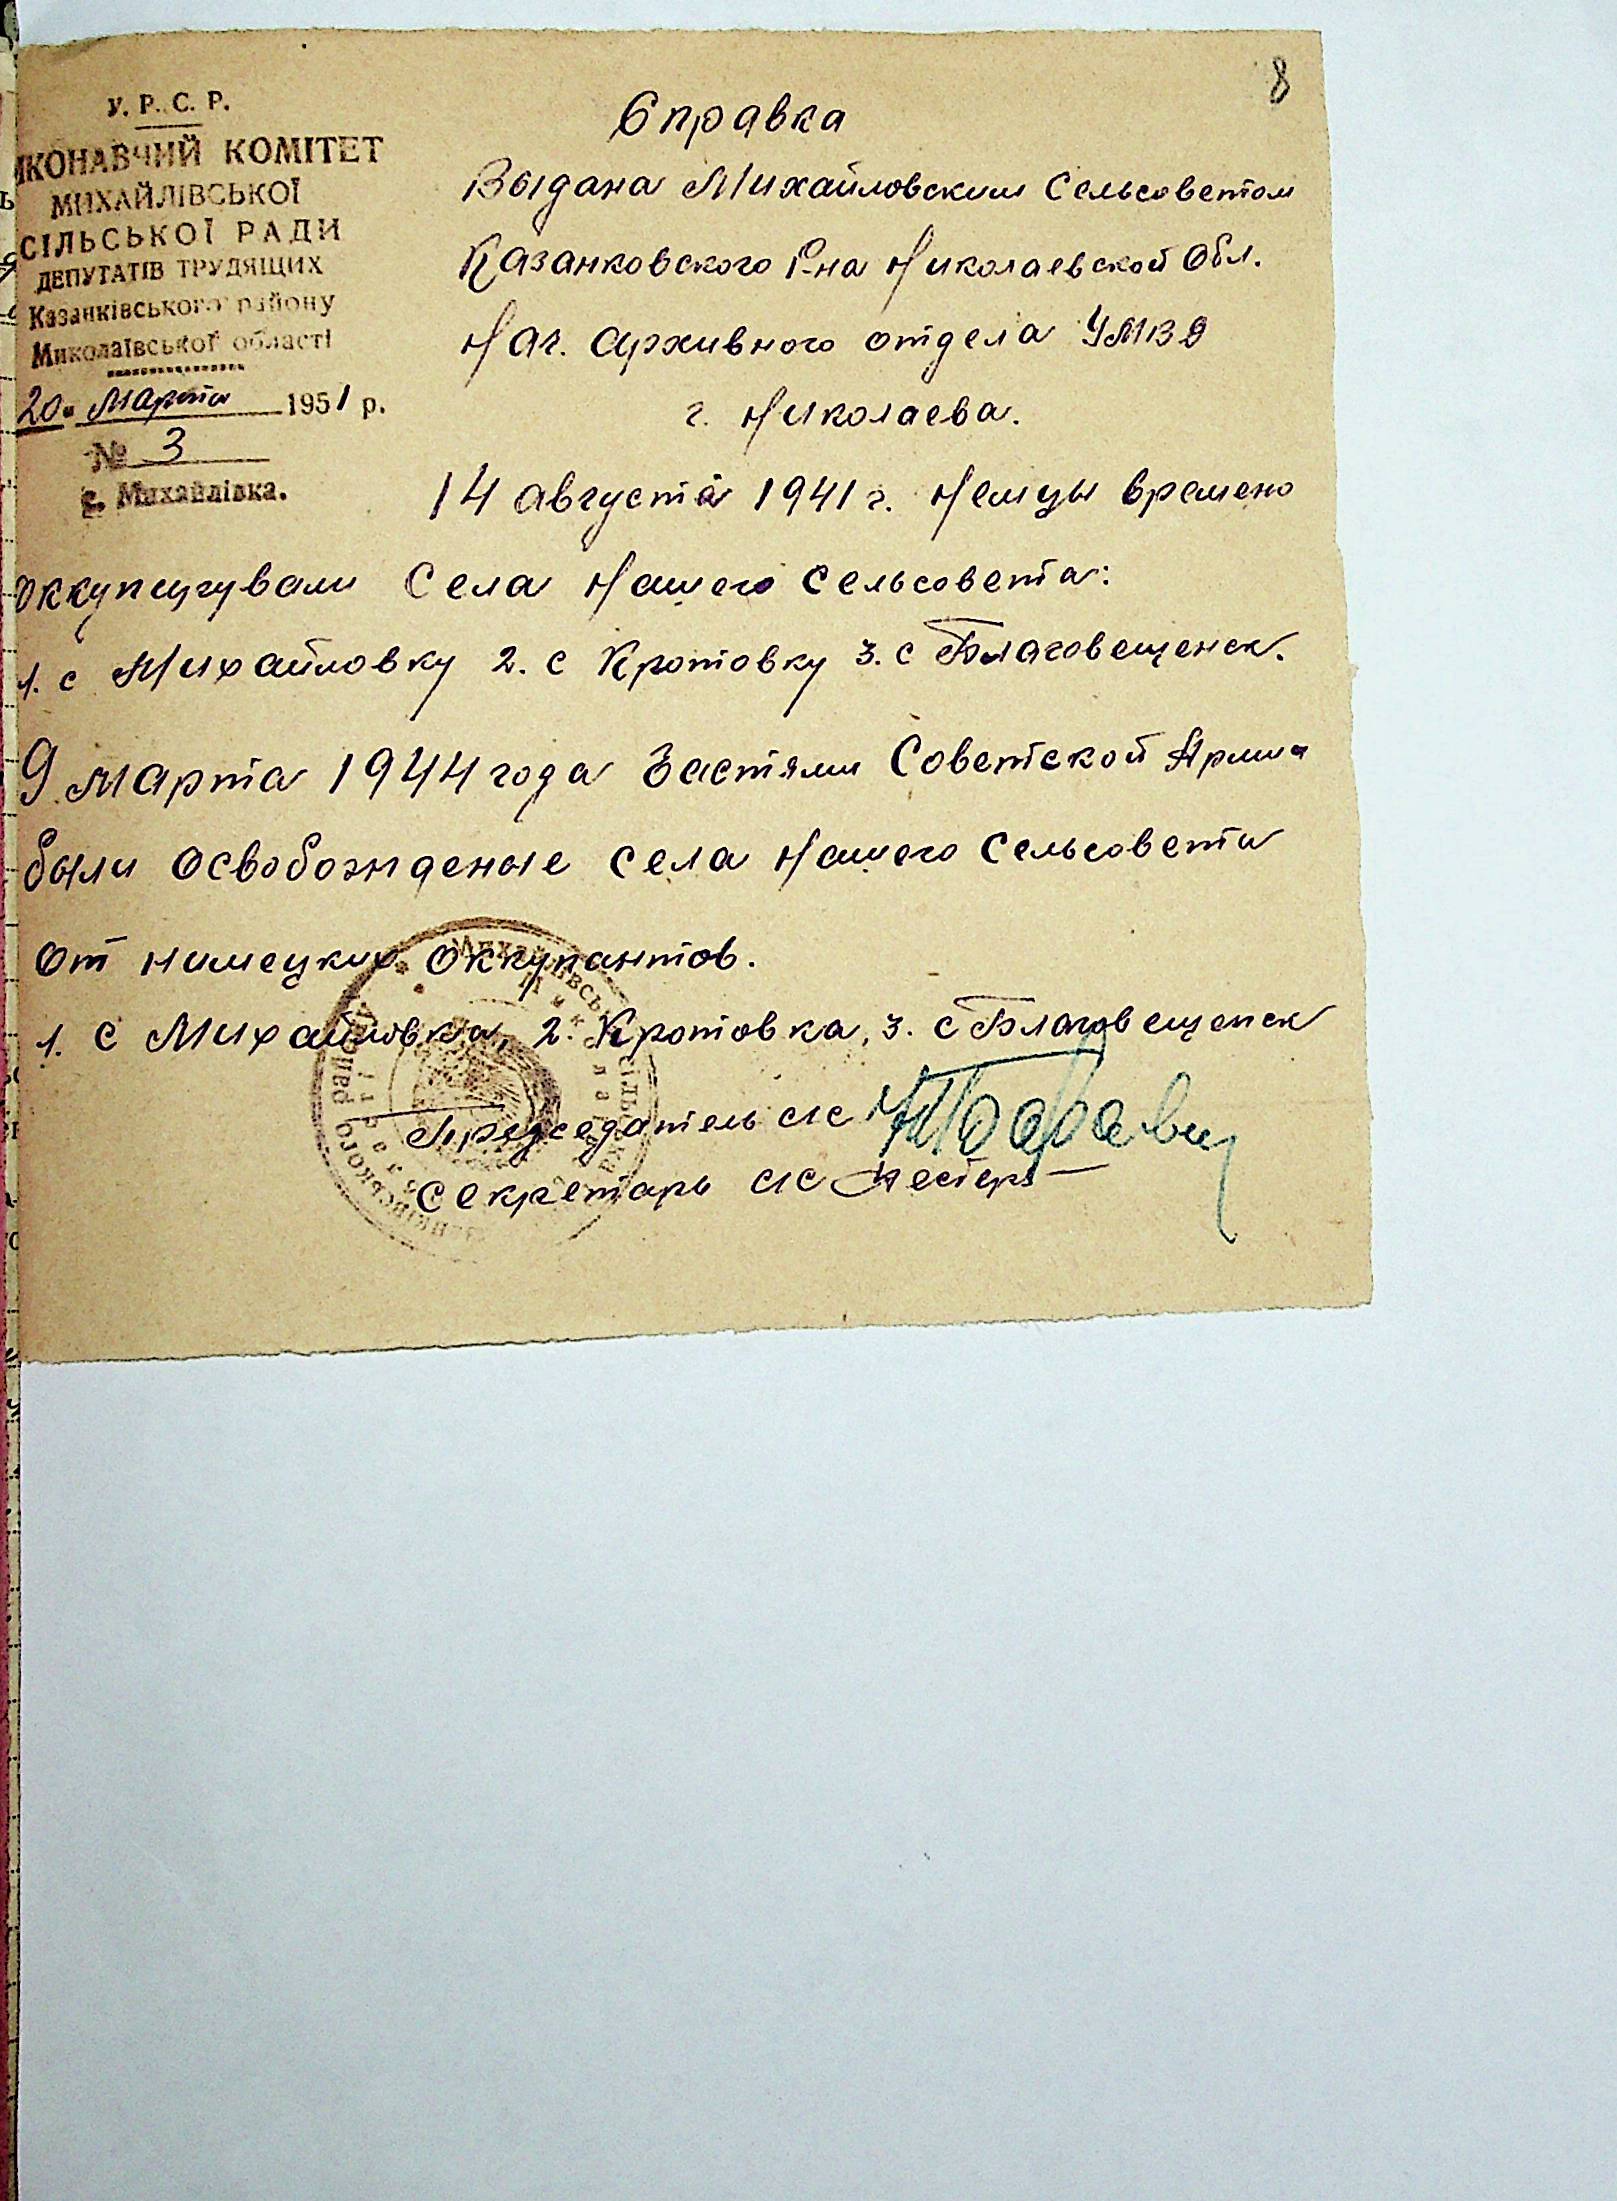 8
У. Р. С. Р.
ИКОНАВЧИЙ КОМІТЕТ
МИХАЙЛІВСЬКОЇ
СІЛЬСЬКОЇ РАДИ
ДЕПУТАТІВ ТРУДЯЩИХ
Казанківського району
Миколаївської області
20. Марта 1951 р.
№ 3
с. Михайлівка.
Справка
Выдана Михайловским Сельсоветом
Казанковского Р-на Николаевской Обл.
Нач. Архивного отдела УМВД
г. Николаева.
14 августа 1941 г. Немцы времено
оккупигували Села Нашего Сельсовета:
1. с Михайловку 2. с Кротовку 3. с Благовещенск.
9 марта 1944 года Частями Советской Армии
были Освобожденые села Нашего Сельсовета
От нимецких Оккупантов.
1. с Михайловка, 2. Кротовка, 3. с Благовещенск
Председатель с/с
Секретарь с/с
Михайлівська сільська
Казанківського району